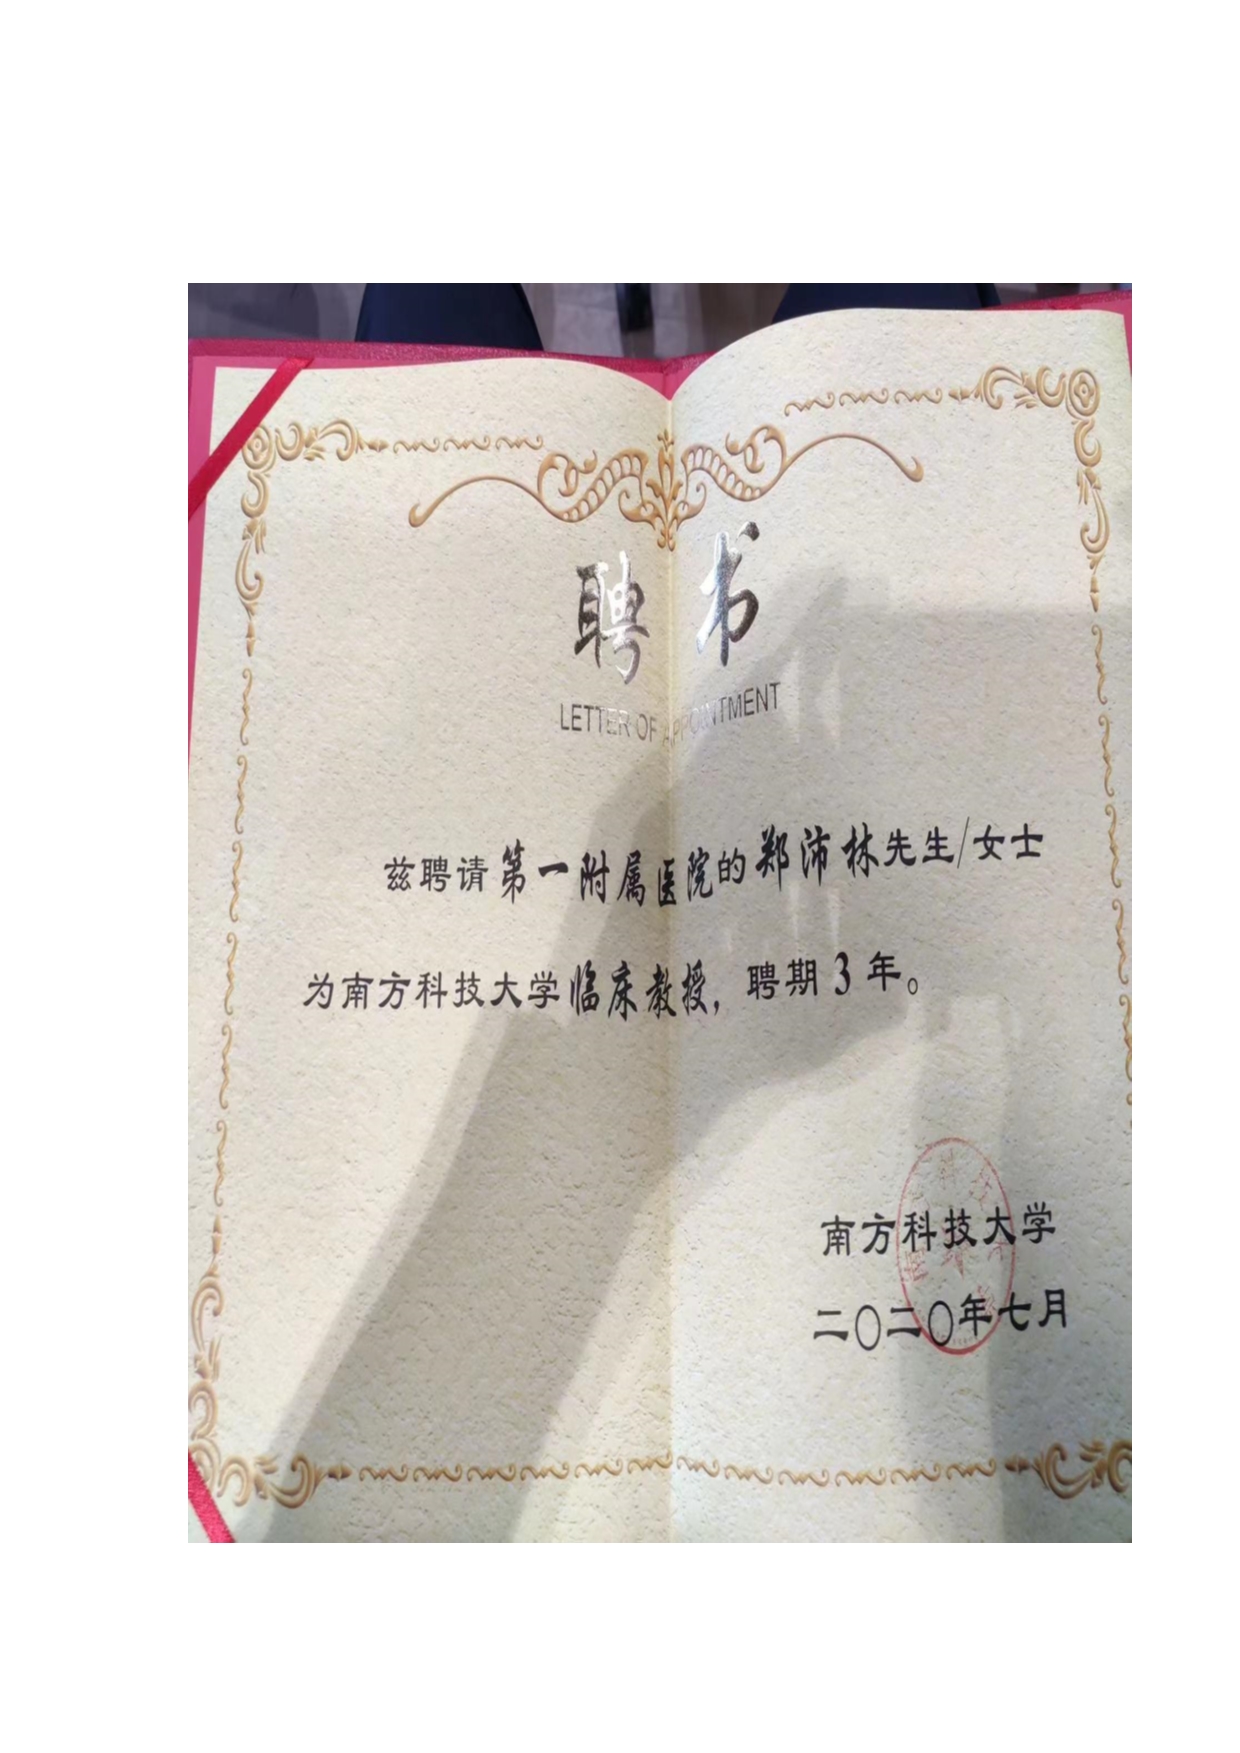 聘 书
LETTER OF APPOINTMENT
兹聘请第一附属医院的郑沛林先生/女士
为南方科技大学临床教授，聘期3年。
南方科技大学
二〇二〇年七月